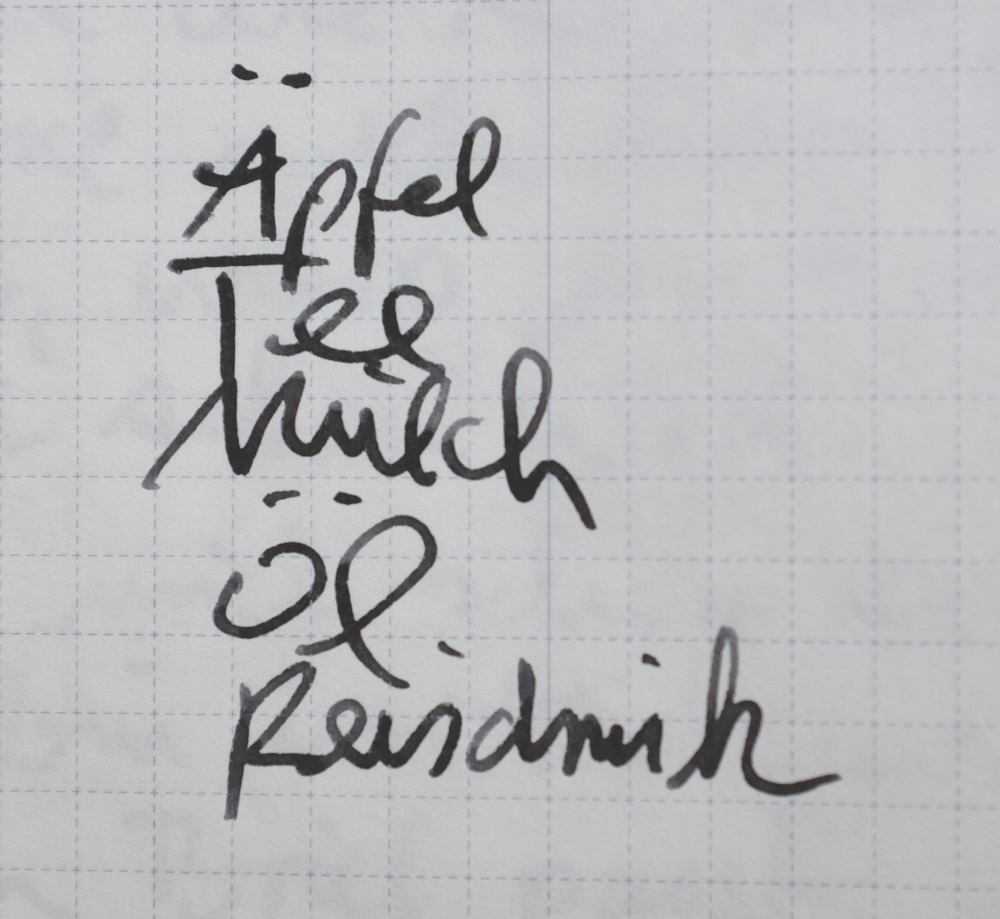 Äpfel
Tee
Milch
Öl